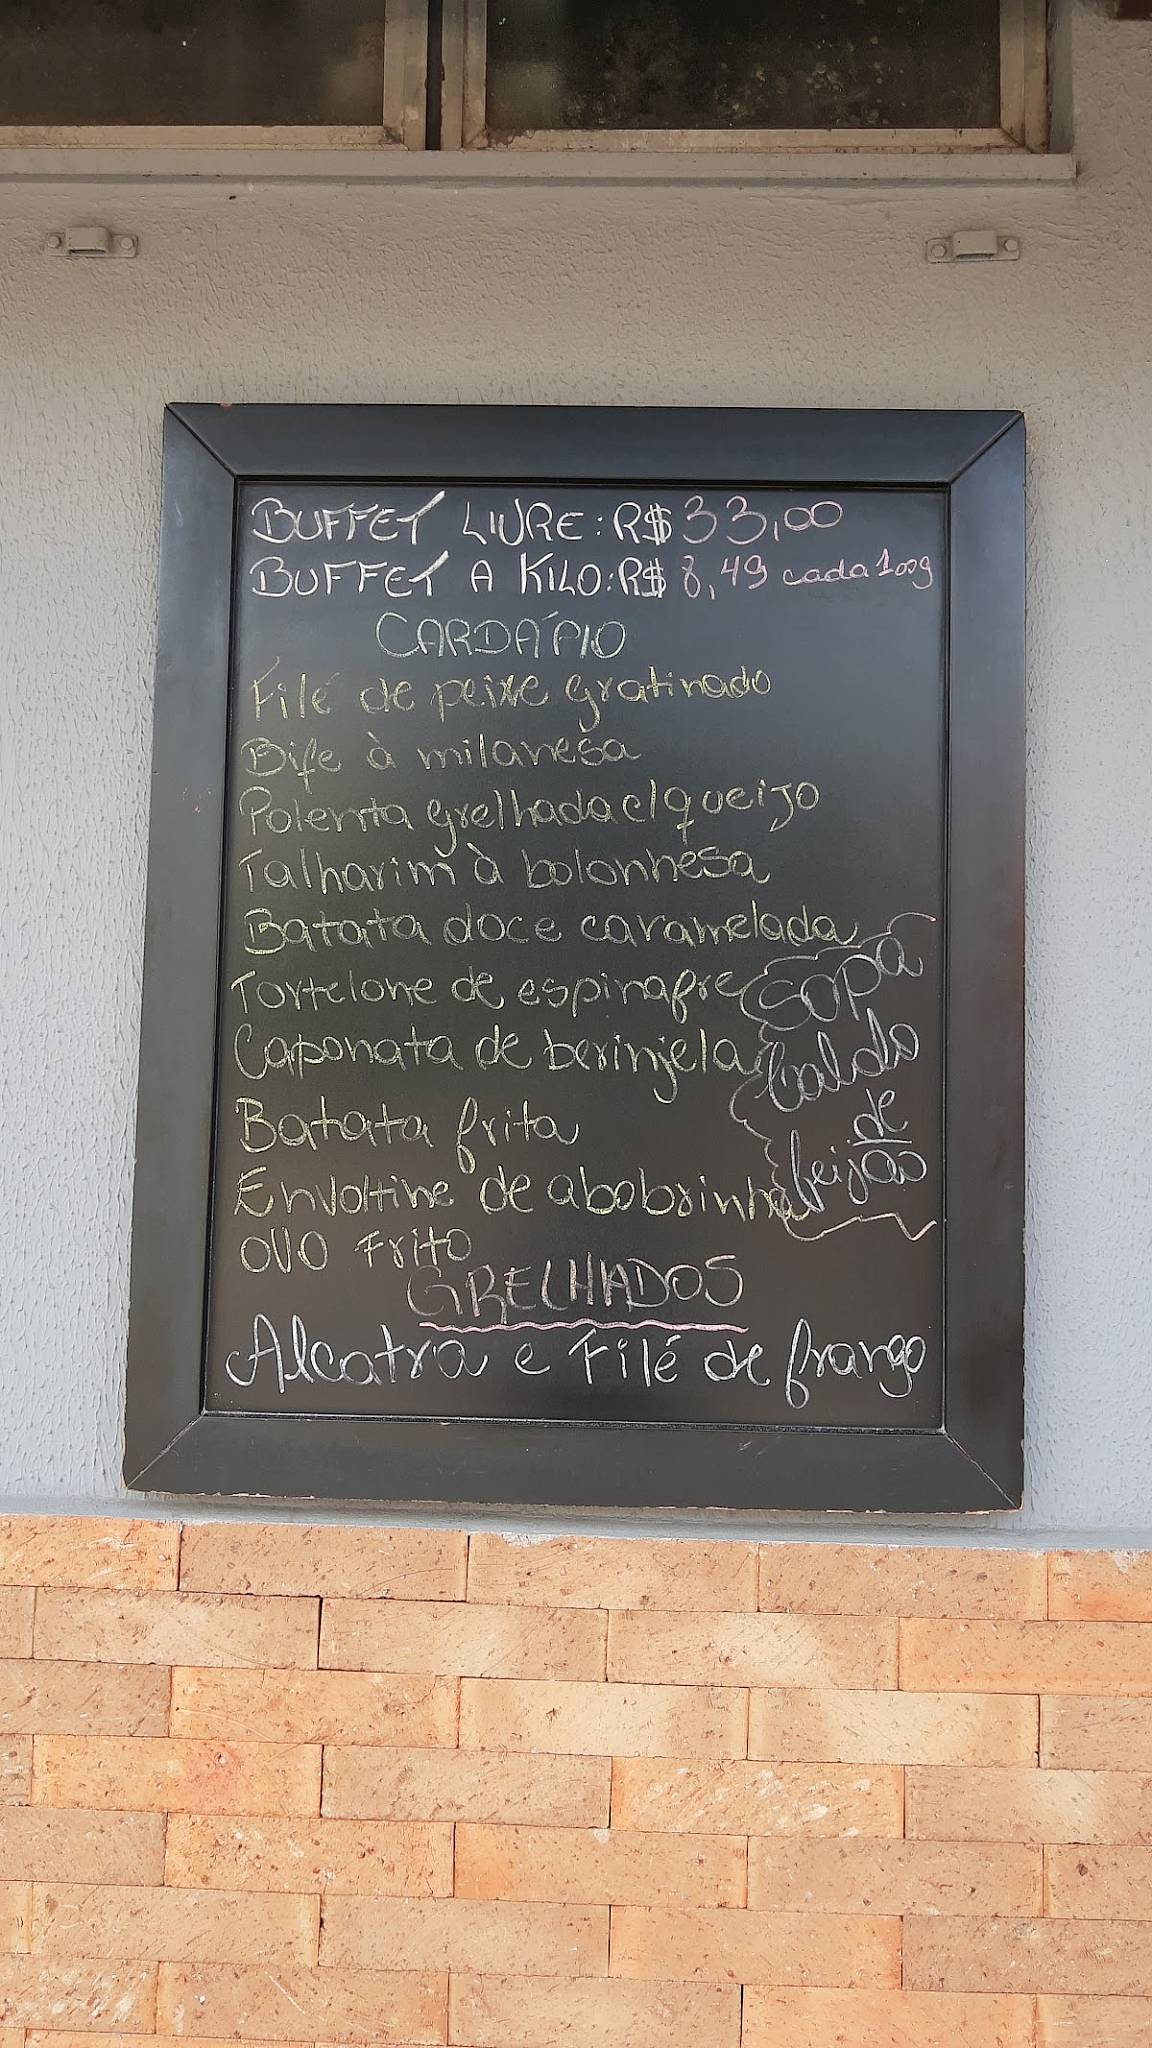 BUFFET LIVRE: R$ 33,00
BUFFET A KILO: R$ 8,49 cada 100g
CARDÁPIO
Filé de peixe gratinado
Bife à milanesa
Polenta grelhada c/queijo
Talharim à bolonhesa
Batata doce caramelada
Tortelone de espinafre
Caponata de berinjela
Batata frita
Envoltine de abobrinha
OVO Frito
sopa
caldo
de
feijão
GRELHADOS
Alcatra e Filé de frango